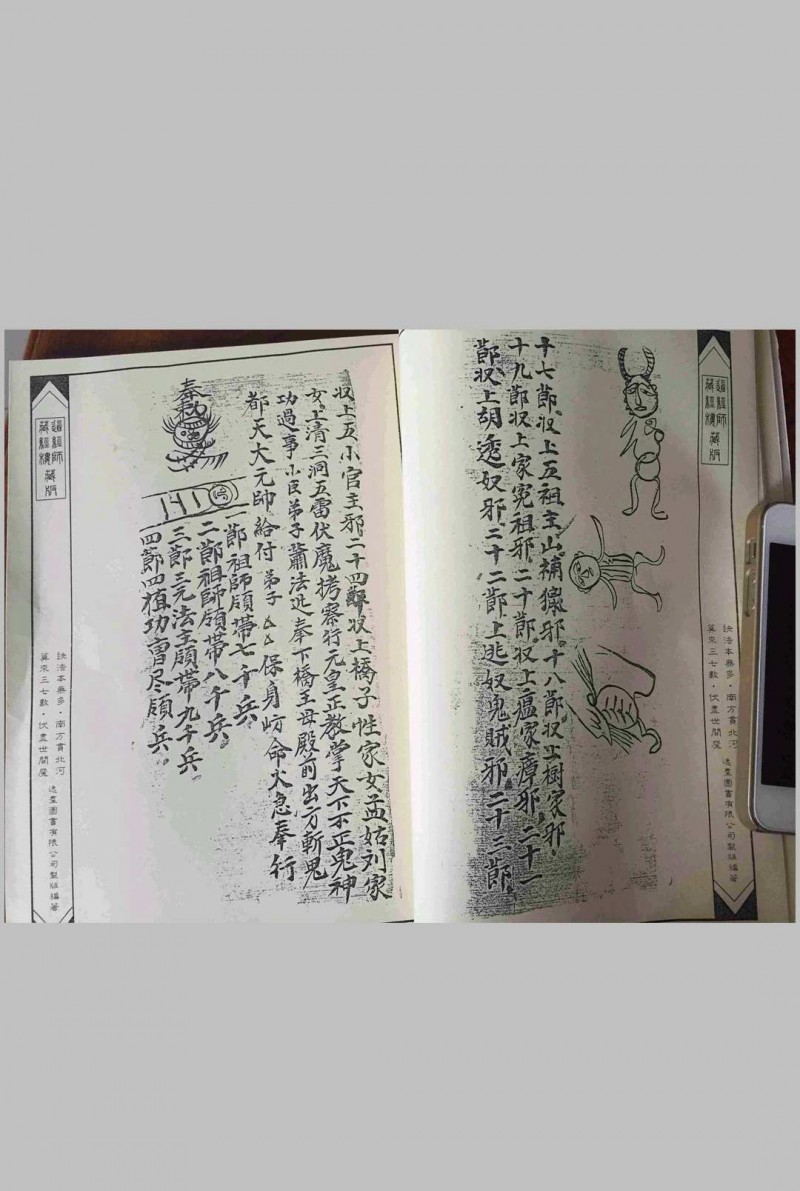 道經師
藏經樓藏版
十七節收上五祖主山補獵邪十八節收上樹家邪
十九節收上家冤祖邪二十節收上瘟家瘴邪二十一
節收上胡透奴邪二十二節上逃奴鬼賊邪二十三節
訣法本無多·南方貫北河
算來三七數·伏盡世間魔
逸群圖書有限公司製版編著
收上五小官主邪二十四節收上橋子性家女孟姑刘家
女上清三洞五雷伏魔拷察行元皇正教掌天下不正鬼神
功過事小臣弟子蕭法迅奉下橋王母殿前出万斬鬼
都天大元帥給付弟子厶厶保身𡵆命火急奉行
奉敕
節祖師領帶七千兵
二節祖師領帶八千兵
三節三元法主領帶九千兵
四節四植功曹尽領兵
道經師
藏經樓藏版
訣法本無多·南方貫北河
算來三七數·伏盡世間魔
逸群圖書有限公司製版編著